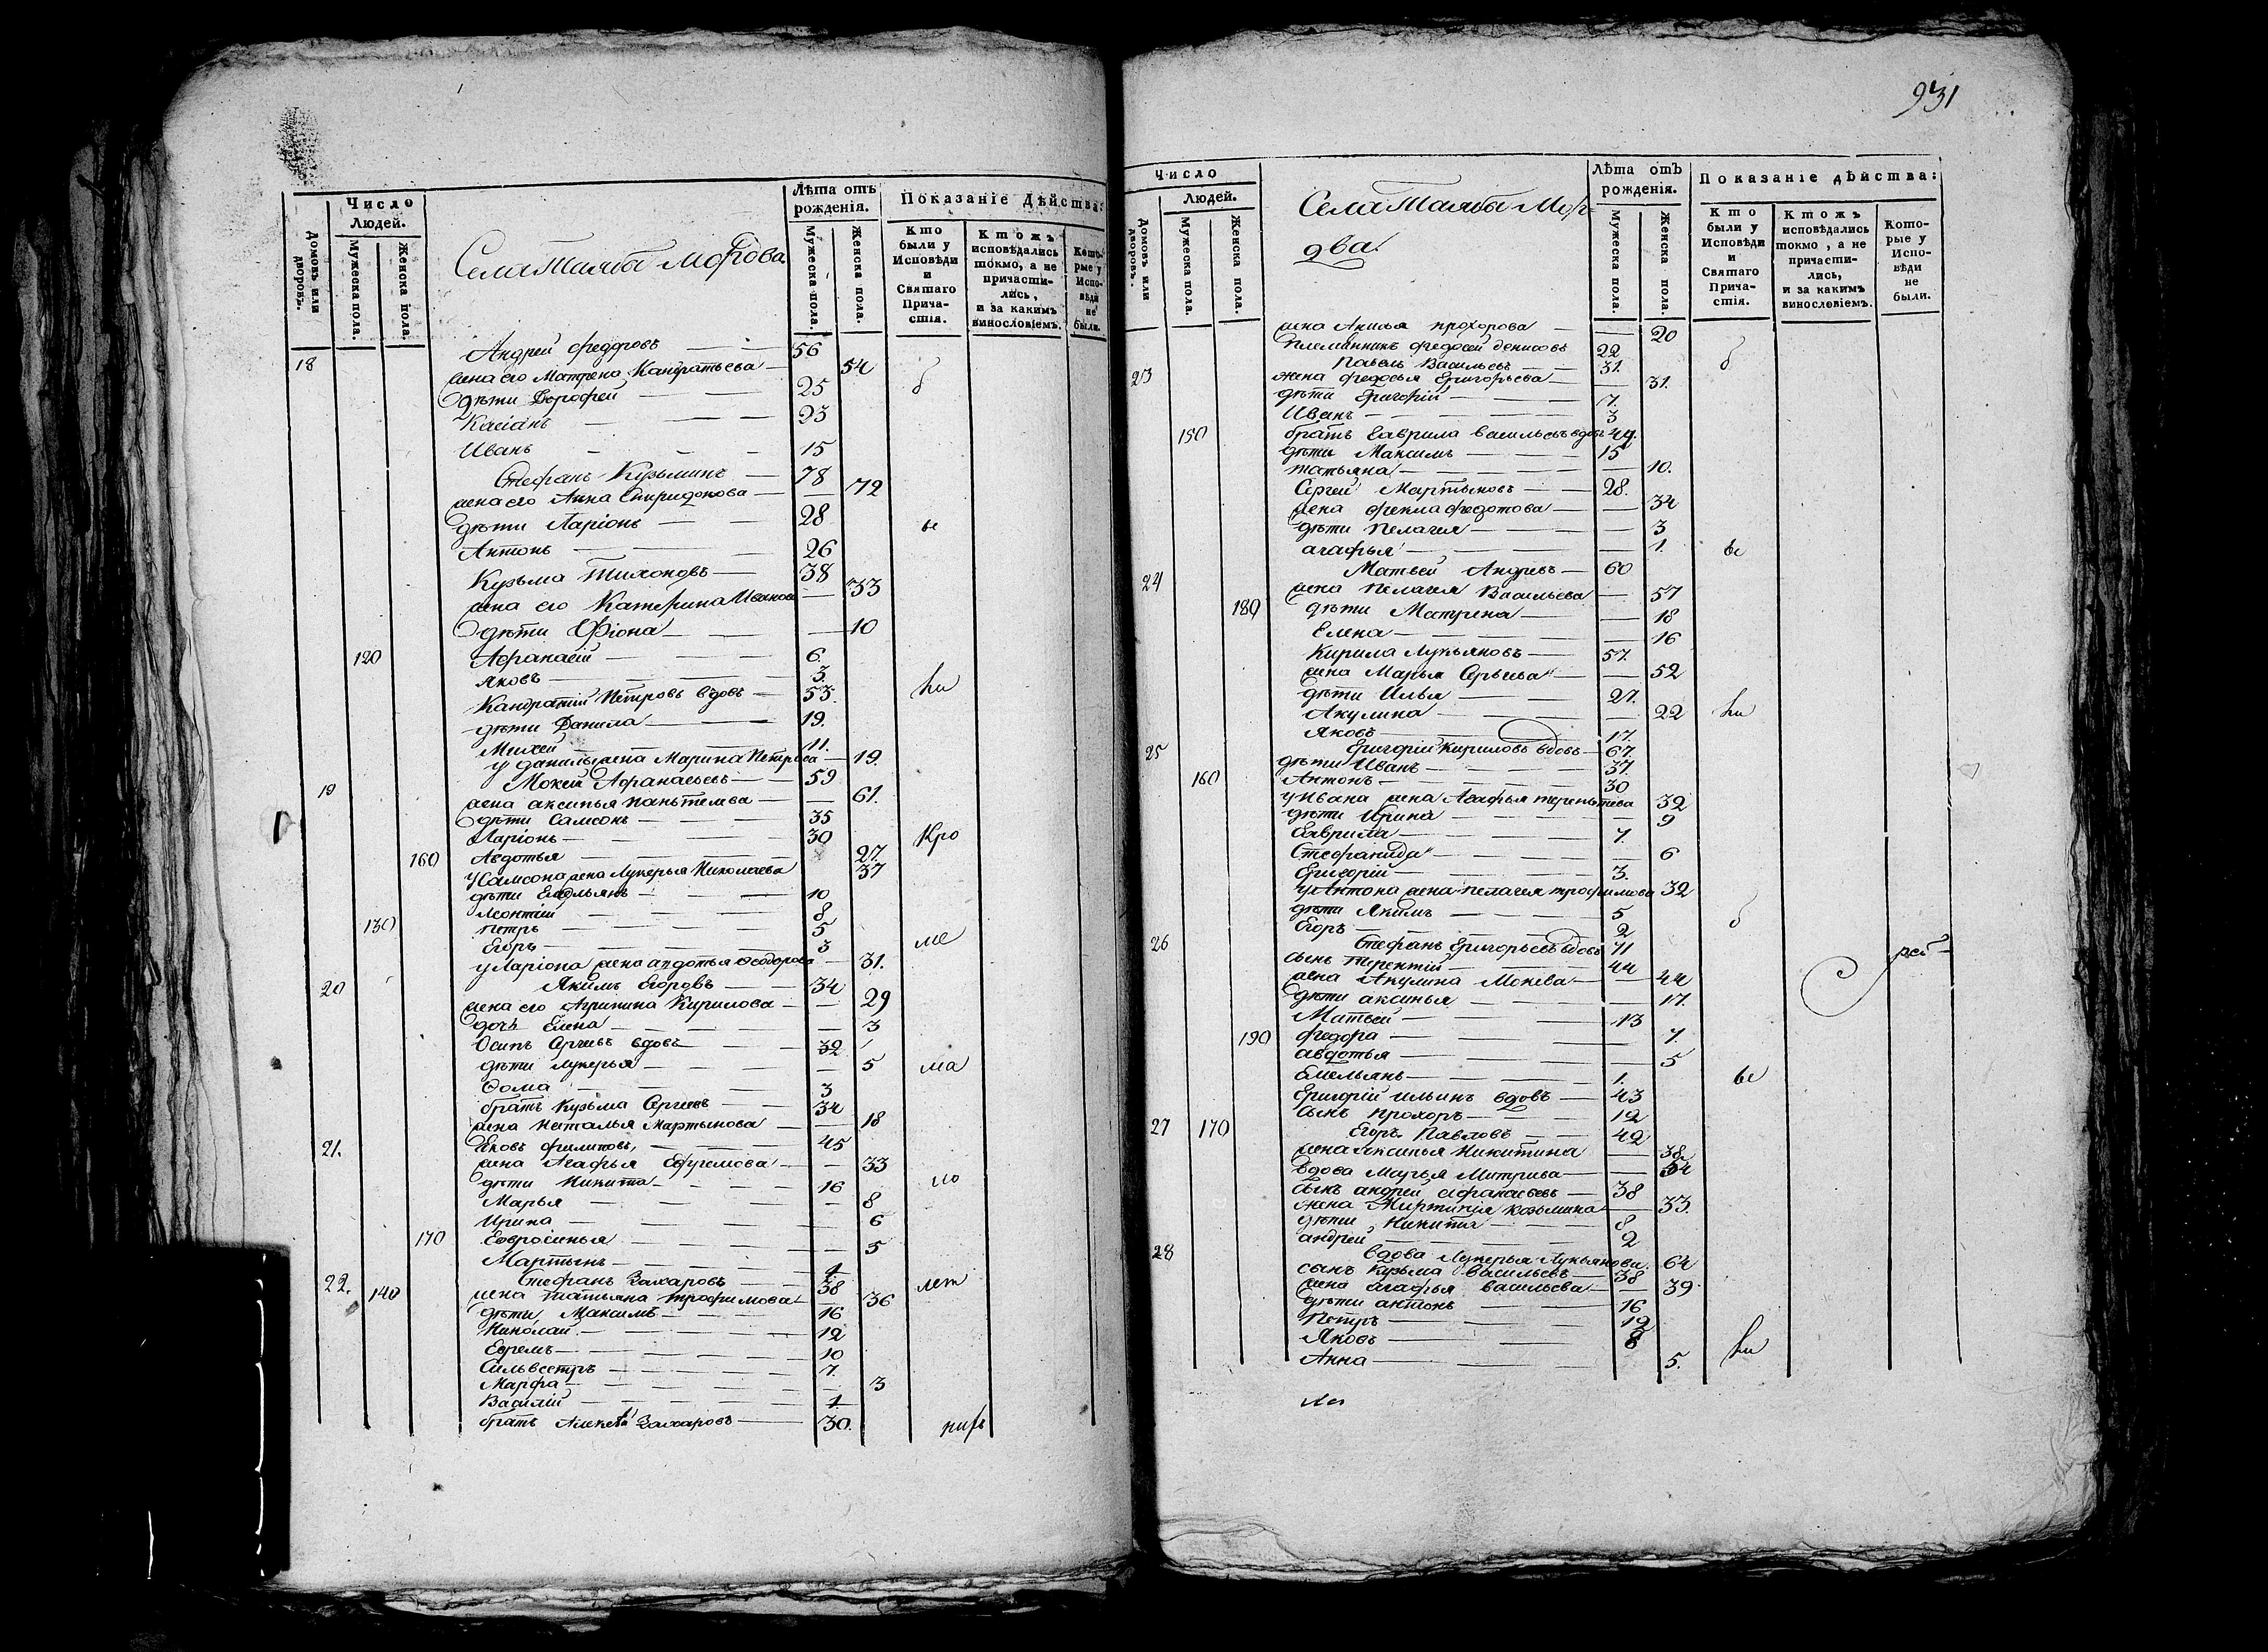 Число
Людей.
Домовъ или дворовъ.
Мужеска пола.
Женска пола.
Села Тамбы Мордва
Лѣта отъ рожденія.
Мужеска пола.
Женска пола.
Показаніе Дѣйства:
Кто были у Исповѣди и Святаго Причастія.
Ктожъ исповѣдались токмо, а не причастились, и за какимъ винословіемъ.
Которые у Исповѣди не были.
18 Андрей Федоровъ — 56
жена его Матрена Кандратьева — 54 б
дѣти Дорофей — 25
Касіанъ — 23
Иванъ — 15
Стефанъ Кузьминъ — 78
жена его Анна Спиридонова — 72
дѣти Ларіонъ — 28 ы
Антонъ — 26
Кузьма Тихоновъ — 38
жена его Катерина Иванова — 33
дѣти Фіона — 10
120 Афанасій — 6.
Яковъ — 3.
Кандратій Петровъ вдовъ — 53. ли
дѣти Данила — 19.
Михей — 11.
у данилы жена Марина Петрова — 19.
19 Мокей Афанасьевъ — 59
жена аксинья пантелева — 61.
дѣти Самсонъ — 35
Ларіонъ — 30 Кро
160 Авдотья — 27.
У Самсона жена Лукерья Николаева 37
дѣти Емельянъ — 10
Леонтій — 8
130 петръ — 5
Егоръ — 3 ме
у Ларіона жена авдотья Феодорова — 31.
20 Якимъ Егоровъ — 34
жена его Агрипина Кирилова — 29
дочь Елена — 3
Осипъ Сергеевъ вдовъ — 32
дѣти Лукерья — 5 ма
Фома — 3
братъ Кузьма Сергеевъ — 34
жена Наталья Мартынова — 18
21. Яковъ филиповъ — 45
жена Агафья Ефремова — 33
дѣти Никита — 16 ло
Марья — 8
Ирина — 6
170 Евфросинья — 5
Мартынъ — 1
22. 140 Стефанъ Захаровъ — 38 лет
жена татьяна трофимова — 36
дѣти Максимъ — 16
Николай — 12
Ефремъ — 10
Сильвестръ — 7.
Марфа — 3
Василій — 1.
братъ Алексей Захаровъ — 30.
931
Число
Людей.
Домовъ или дворовъ.
Мужеска пола.
Женска пола.
Села Тамбы Мор-
два
Лѣта отъ рожденія.
Мужеска пола.
Женска пола.
Показаніе дѣйства:
Кто были у Исповѣди и Святаго Причастія.
Ктожъ исповѣдались токмо, а не причастились, и за какимъ винословіемъ.
Которые у Исповѣди не были.
жена Акилья прохорова — 20
племянникъ федосей денисовъ 22 б
23 Павелъ Васильевъ — 31.
жена федосья Григорьева — 31.
дѣти Григорій — 7.
Иванъ — 3
150 братъ Гаврила васильевъ вдовъ 49.
дѣти Максимъ — 15
татьяна — 10.
Сергей Мартыновъ — 28.
жена фекла федотова — 34
дѣти пелагея — 3
агафья — 1. ы
24 Матвей Андревъ — 60
жена пелагея Васильева — 57
180 дѣти Матрена — 18
Елена — 16
Кирила Лукьяновъ — 57.
жена Марья Сергеева — 52
дѣти Илья — 27.
Акулина — 22 ли
Яковъ — 17.
25 Григорій Кириловъ вдовъ — 67.
дѣти Иванъ — 37.
160 Антонъ — 30
у Ивана жена Агафья терентева 32
дѣти Ирина — 9
Гаврила — 7.
Стефанида — 6
Григорій — 3.
у Антона жена пелагея трофимова 32
дѣти Якимъ — 5 б
Егоръ — 2
26 Стефанъ Григорьевъ вдовъ 71
сынъ терентій — 44
жена Акулина Мокева — 44
дѣти аксинья — 17.
Матвей — 13
190 федора — 7.
авдотья — 5
Емельянъ — 1. ы
Григорій ильинъ вдовъ — 43
сынъ прохоръ — 12
27 170 Егоръ Павловъ — 42
жена аксинья Никитина — 38.
вдова Марья Митрива — 54
сынъ андрей афанасьевъ — 38
жена Козьмина — 33.
дѣти Никита — 8
андрей — 2
28 вдова Лукерья Лукьянова 64
сынъ Кузьма васильевъ — 38
жена агафья васильева — 39.
дѣти антонъ — 16
Петръ — 12
Яковъ — 8
Анна — 5. ли